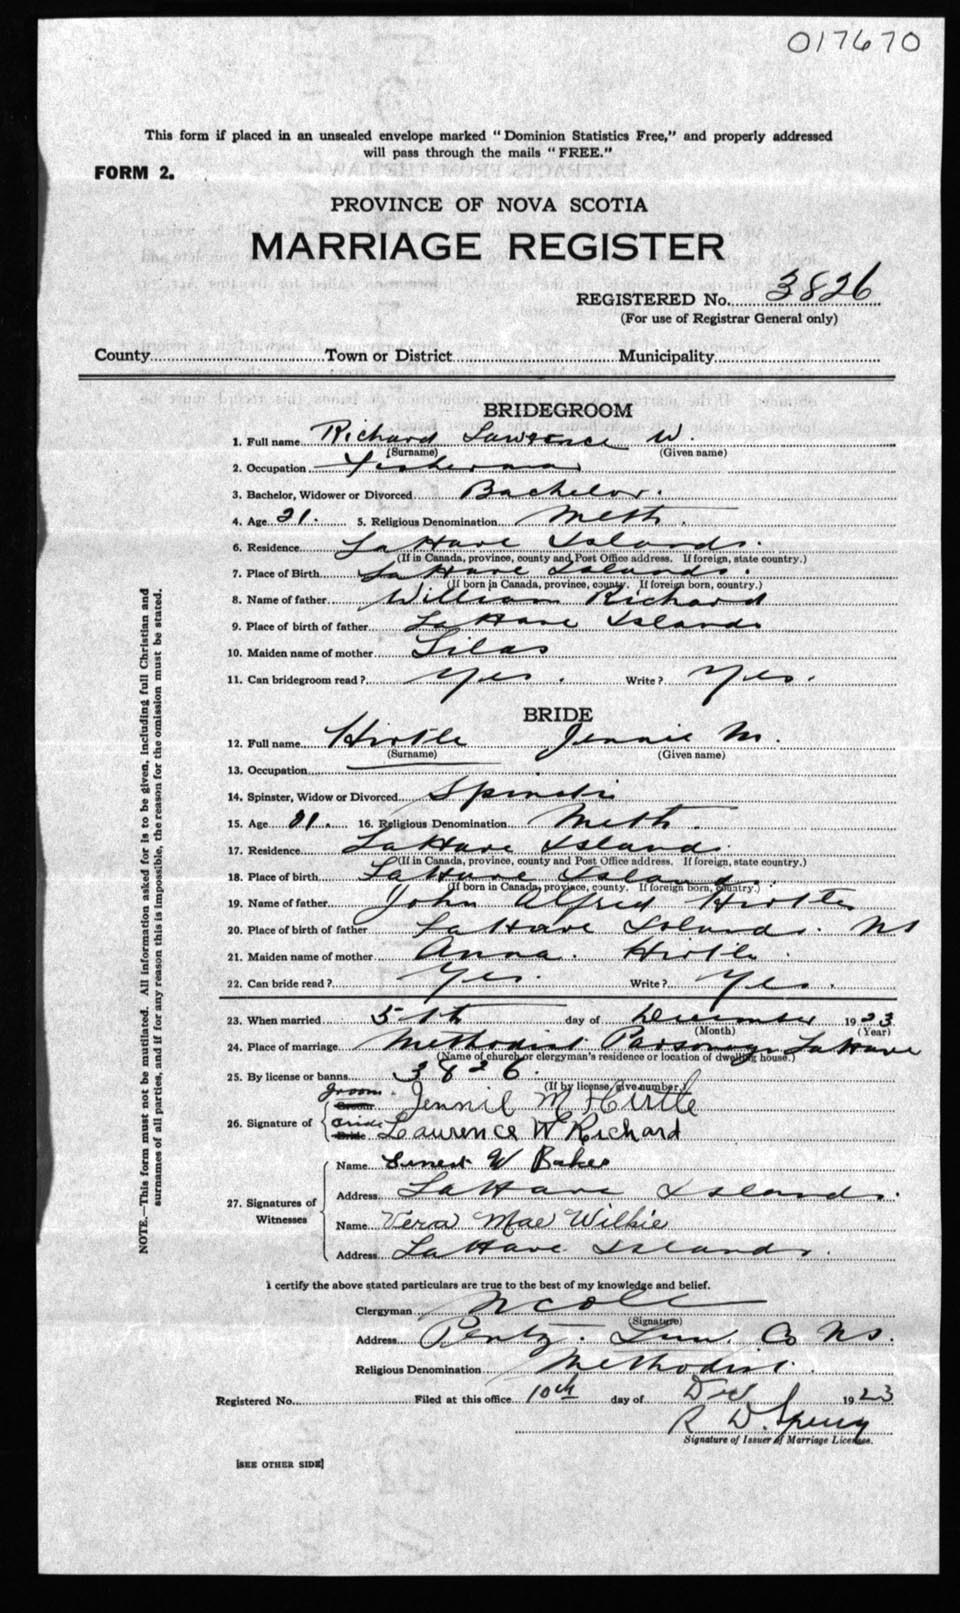 017670
This form if placed in an unsealed envelope marked "Dominion Statistics Free," and properly addressed
will pass through the mails "FREE."
FORM 2.
PROVINCE OF NOVA SCOTIA
MARRIAGE REGISTER
REGISTERED No. 3826
(For use of Registrar General only)
County Town or District Municipality
BRIDEGROOM
1. Full name Richard Lawrence W.
(Surname) (Given name)
2. Occupation Fisherman
3. Bachelor, Widower or Divorced Bachelor.
4. Age 21. 5. Religious Denomination Meth.
6. Residence LaHave Islands.
(If in Canada, province, county and Post Office address. If foreign, state country.)
7. Place of Birth LaHave Islands.
(If born in Canada, province, county. If foreign born, country.)
8. Name of father William Richard
9. Place of birth of father LaHave Islands
10. Maiden name of mother Silas
11. Can bridegroom read? Yes. Write? Yes.
BRIDE
12. Full name Hirtle Jennie M.
(Surname) (Given name)
13. Occupation
14. Spinster, Widow or Divorced
15. Age 21. 16. Religious Denomination Meth.
17. Residence LaHave Islands.
(If in Canada, province, county and Post Office address. If foreign, state country.)
18. Place of birth LaHave Islands.
(If born in Canada, province, county. If foreign born, country.)
19. Name of father John Alfred Hirtle
20. Place of birth of father LaHave Islands. NS
21. Maiden name of mother Anna. Hirtle.
22. Can bride read? Yes. Write? Yes.
23. When married 5th day of December 1923
(Month) (Year)
24. Place of marriage Methodist Parsonage LaHave
(Name of church or clergyman's residence or location of dwelling house.)
25. By license or banns 3826.
(If by license, give number.)
groom. Groom Jennie M Hirtle
26. Signature of
Bride Bride Laurence W Richard
Name Ernest W Baker
Address LaHave Islands.
27. Signatures of
Witnesses
Name Vera Mae Wilkie
Address LaHave Islands.
I certify the above stated particulars are true to the best of my knowledge and belief.
Clergyman
(Signature)
Address Pentz. Lun. Co NS.
Religious Denomination Methodist.
Registered No. Filed at this office 10th day of Dec 1923
R D. Sperry
Signature of Issuer of Marriage Licenses.
[SEE OTHER SIDE]
NOTE.—This form must not be mutilated. All information asked for is to be given, including full Christian and
surnames of all parties, and if for any reason this is impossible, the reason for the omission must be stated.